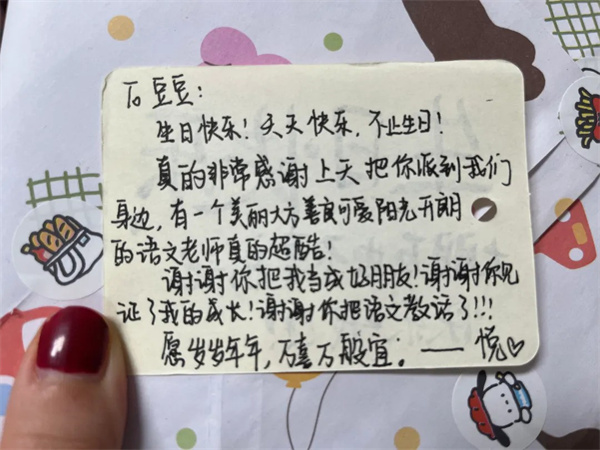 To 豆豆：
生日快乐！天天快乐，不止生日！
真的非常感谢上天把你派到我们
身边，有一个美丽大方善良可爱阳光开朗
的语文老师真的超酷！
谢谢你把我当成好朋友！谢谢你见
证了我的成长！谢谢你把语文教活了！！！
愿岁岁年年，万喜万般宜。——悦♡